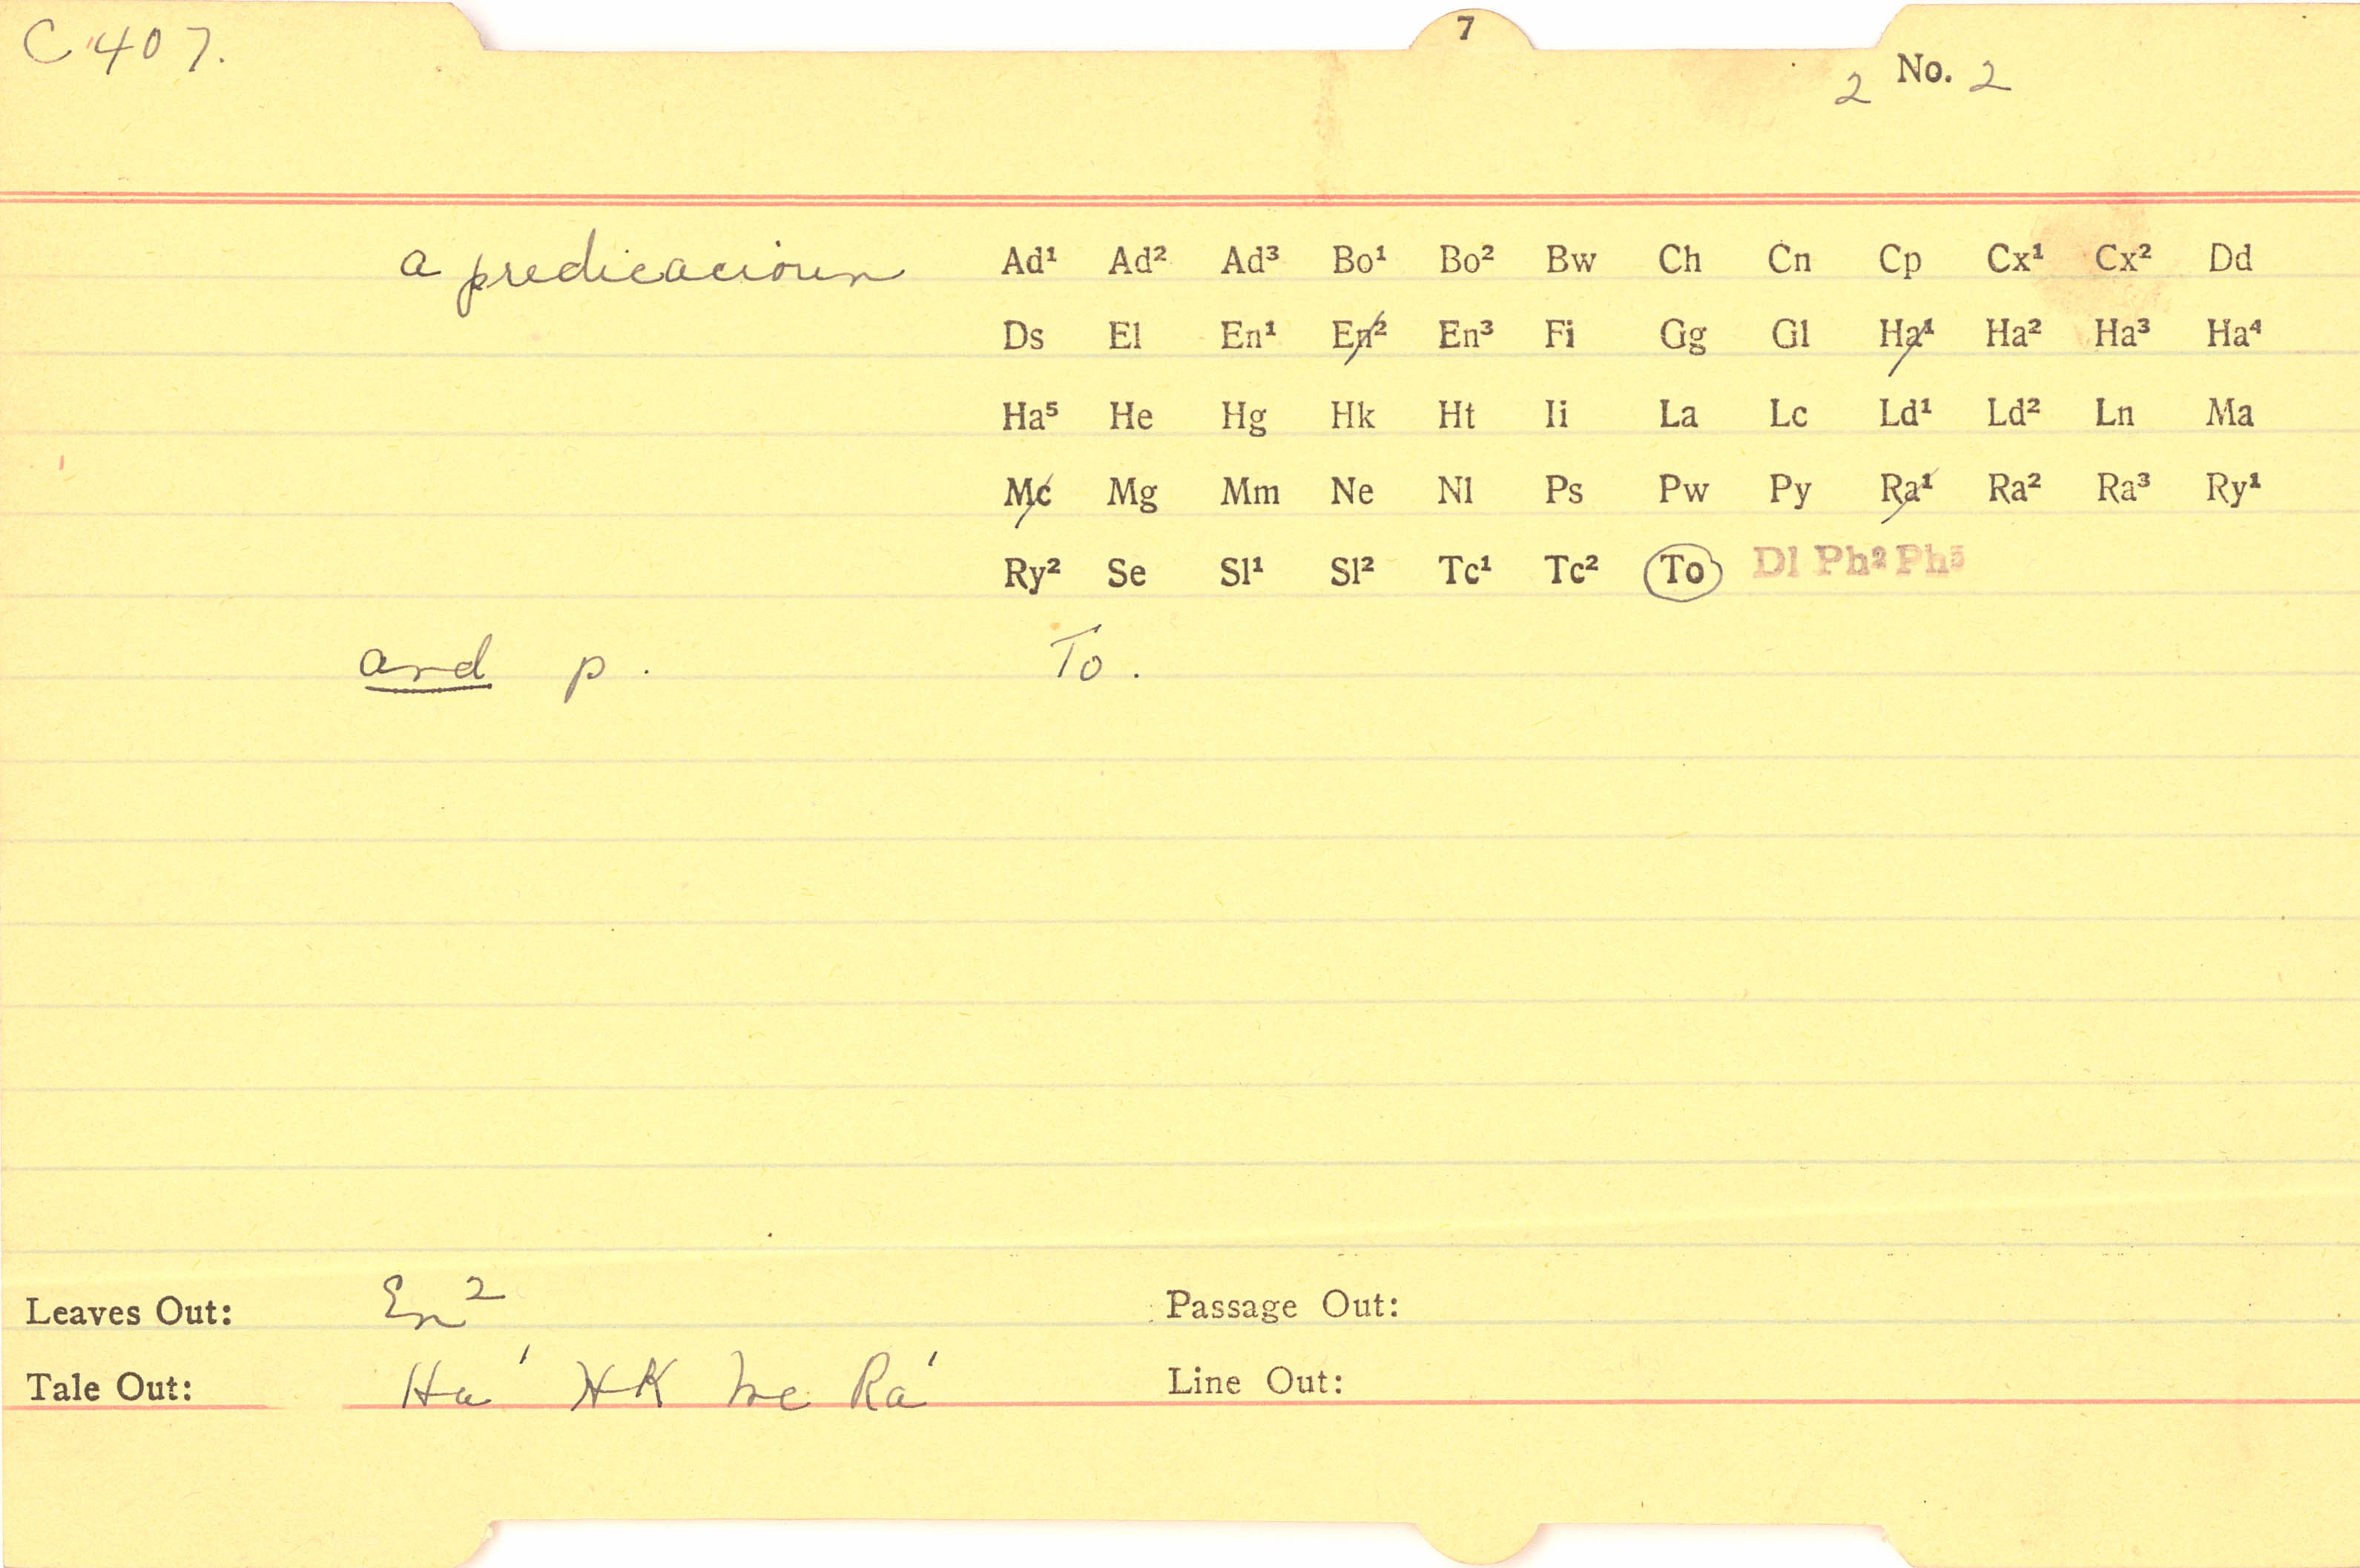 C 407.
7
2 No. 2
a predicacioun Ad¹ Ad² Ad³ Bo¹ Bo² Bw Ch Cn Cp Cx¹ Cx² Dd
Ds El En¹ En² En³ Fi Gg Gl Ha¹ Ha² Ha³ Ha⁴
Ha⁵ He Hg Hk Ht Ii La Lc Ld¹ Ld² Ln Ma
Mc Mg Mm Ne Nl Ps Pw Py Ra¹ Ra² Ra³ Ry¹
Ry² Se Sl¹ Sl² Tc¹ Tc² To Dl Ph² Ph⁵
and p. To.
Leaves Out: En² Passage Out:
Tale Out: Ha¹ HK Mc Ra¹ Line Out: